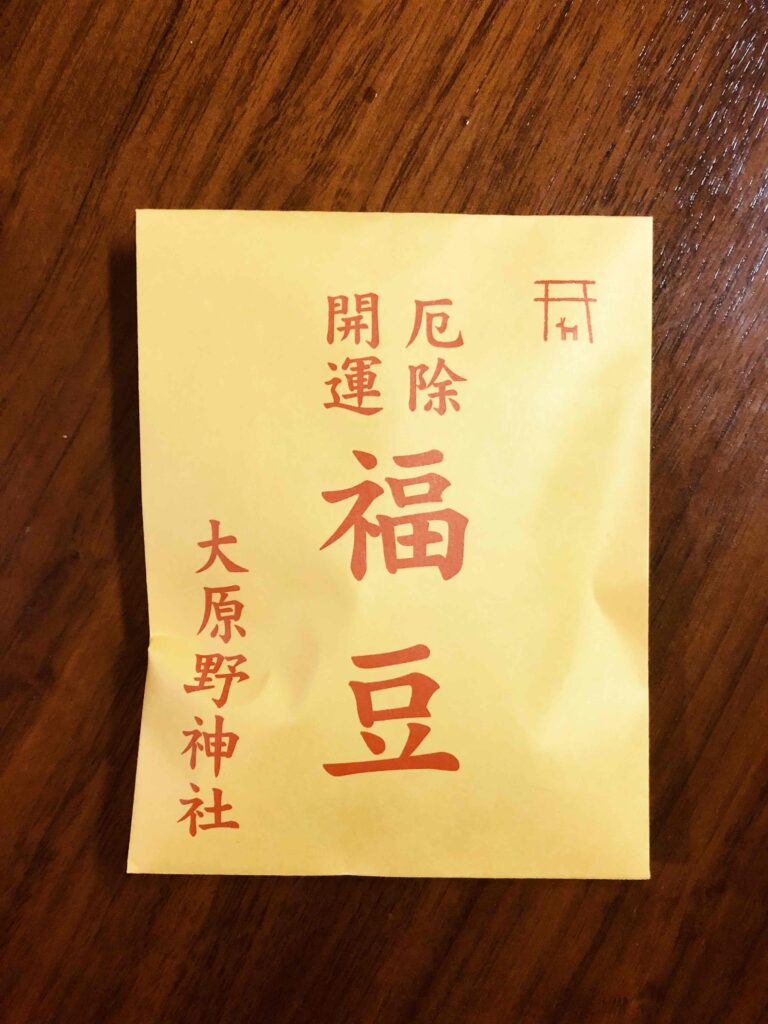 厄除
開運
福豆
大原野神社